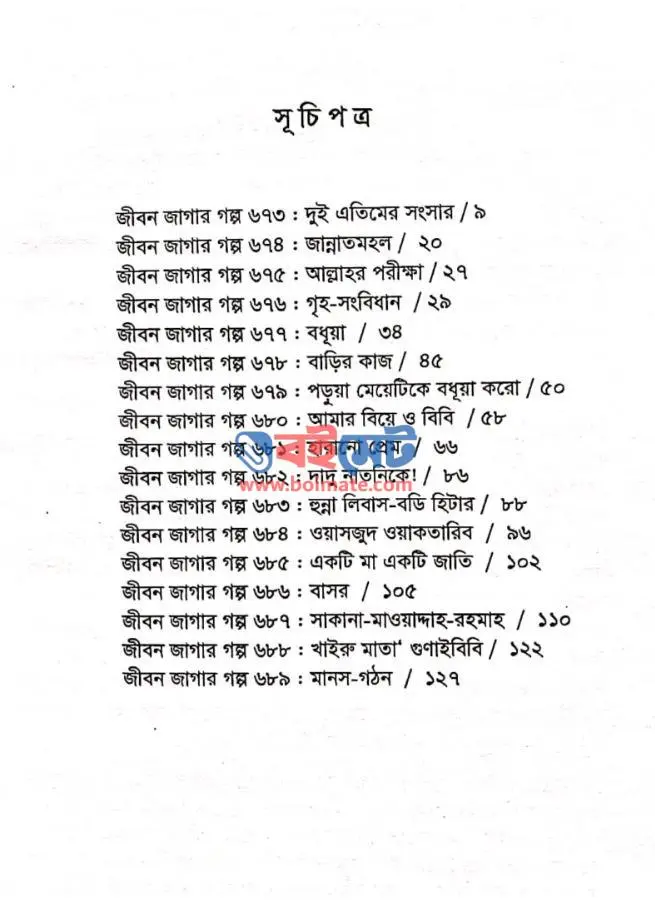 সূচিপত্র
জীবন জাগার গল্প ৬৭৩ : দুই এতিমের সংসার / ৯
জীবন জাগার গল্প ৬৭৪ : জান্নাতমহল / ২০
জীবন জাগার গল্প ৬৭৫ : আল্লাহর পরীক্ষা / ২৭
জীবন জাগার গল্প ৬৭৬ : গৃহ-সংবিধান / ২৯
জীবন জাগার গল্প ৬৭৭ : বধূয়া / ৩৪
জীবন জাগার গল্প ৬৭৮ : বাড়ির কাজ / ৪৫
জীবন জাগার গল্প ৬৭৯ : পড়ুয়া মেয়েটিকে বধূয়া করো / ৫০
জীবন জাগার গল্প ৬৮০ : আমার বিয়ে ও বিবি / ৫৮
জীবন জাগার গল্প ৬৮১ : হারানো প্রেম / ৬৬
বইমেট
জীবন জাগার গল্প ৬৮২ : দাদু নাতনিকে! / ৮৬
www.boimate.com
জীবন জাগার গল্প ৬৮৩ : হুন্না লিবাস-বডি হিটার / ৮৮
জীবন জাগার গল্প ৬৮৪ : ওয়াসজুদ ওয়াকতারিব / ৯৬
জীবন জাগার গল্প ৬৮৫ : একটি মা একটি জাতি / ১০২
জীবন জাগার গল্প ৬৮৬ : বাসর / ১০৫
জীবন জাগার গল্প ৬৮৭ : সাকানা-মাওয়াদ্দাহ-রহমাহ / ১১০
জীবন জাগার গল্প ৬৮৮ : খাইরু মাতা' গুণাইবিবি / ১২২
জীবন জাগার গল্প ৬৮৯ : মানস-গঠন / ১২৭